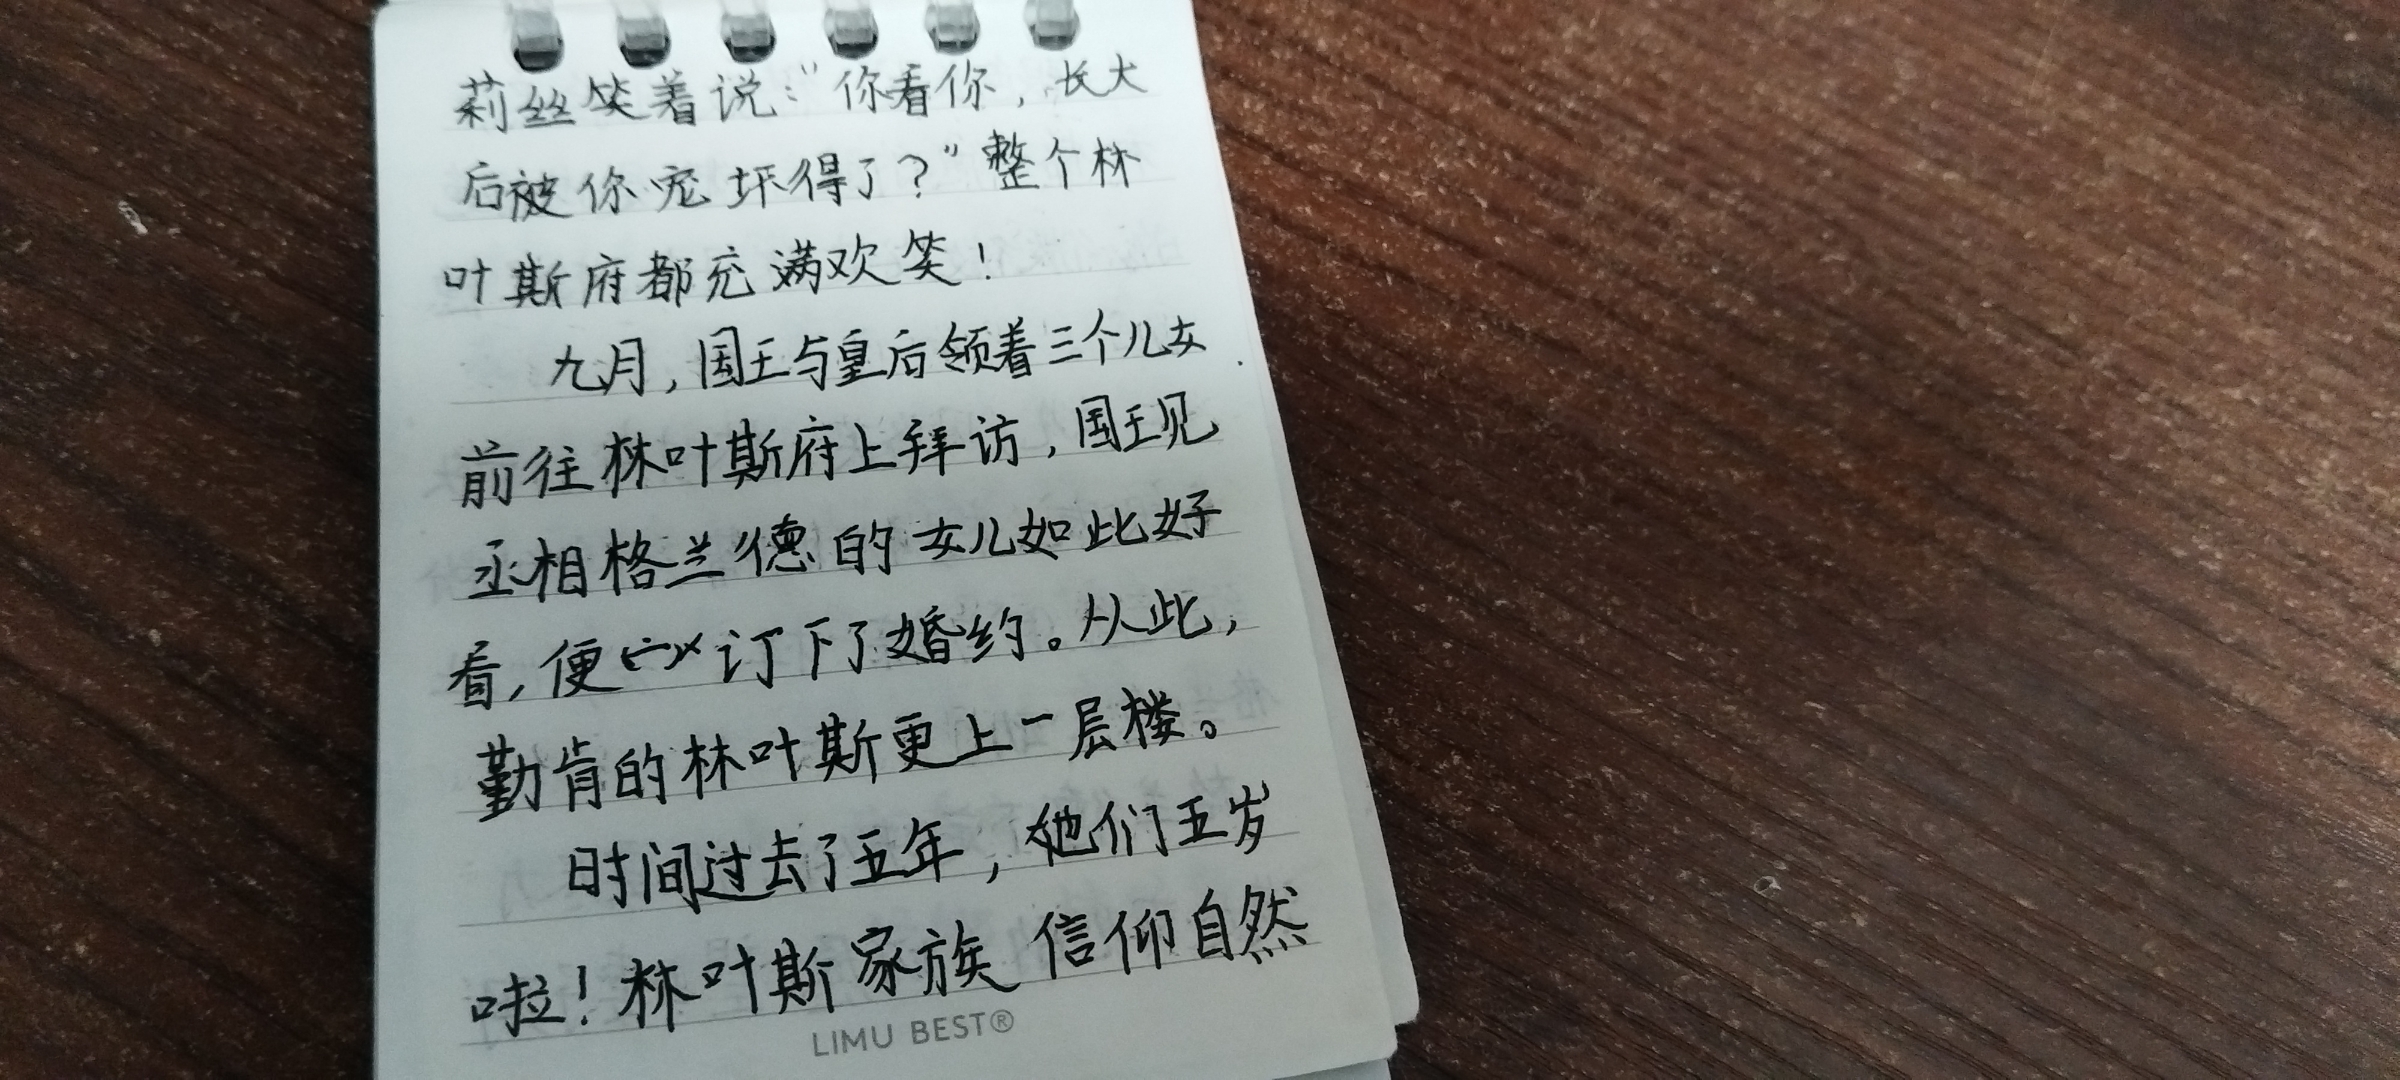 莉丝笑着说:"你看你,长大
后被你宠坏得了?"整个林
叶斯府都充满欢笑!
九月,国王与皇后领着三个儿女
前往林叶斯府上拜访,国王见
丞相格兰德的女儿如此好
看,便订下了婚约。从此,
勤肯的林叶斯更上一层楼。
时间过去了五年,她们五岁
啦!林叶斯家族信仰自然
LIMU BEST®